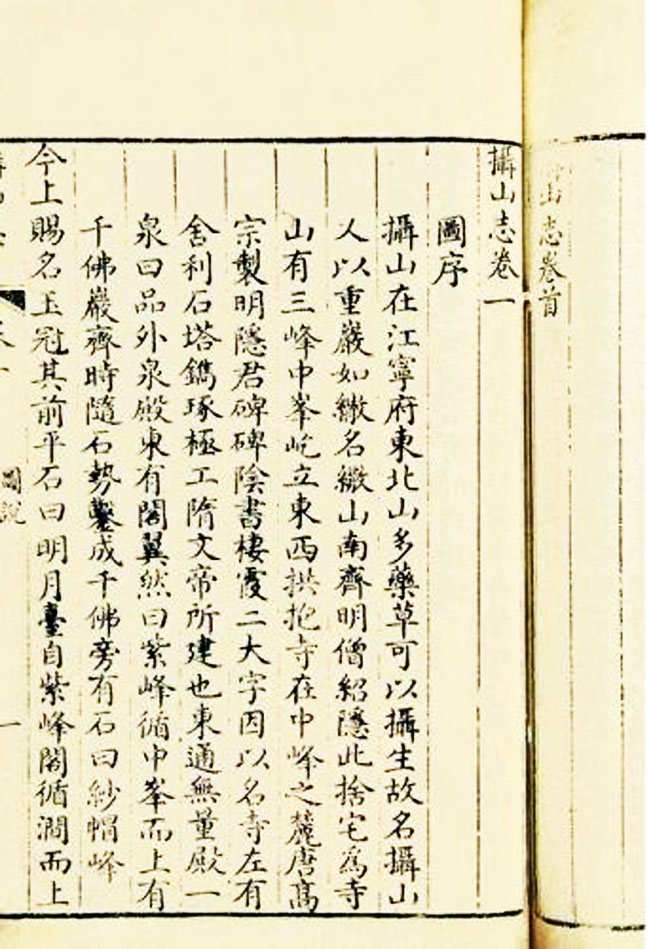 山志卷首
攝山志卷一
圖序
攝山在江寧府東北山多藥草可以攝生故名攝山
又以重巖如繖名繖山南齊明僧紹隱此捨宅為寺
山有三峰中峯屹立東西拱抱寺在中峰之麓唐高
宗製明隱君碑碑陰書棲霞二大字因以名寺左有
舍利石塔鐫琢極工隋文帝所建也東通無量殿一
泉曰品外泉殿東有閣翼然曰紫峰循中峯而上有
千佛巖齊時隨石勢鑿成千佛旁有石曰紗帽峰
今上賜名玉冠其前平石曰明月臺自紫峰閣循澗而上
圖說
一